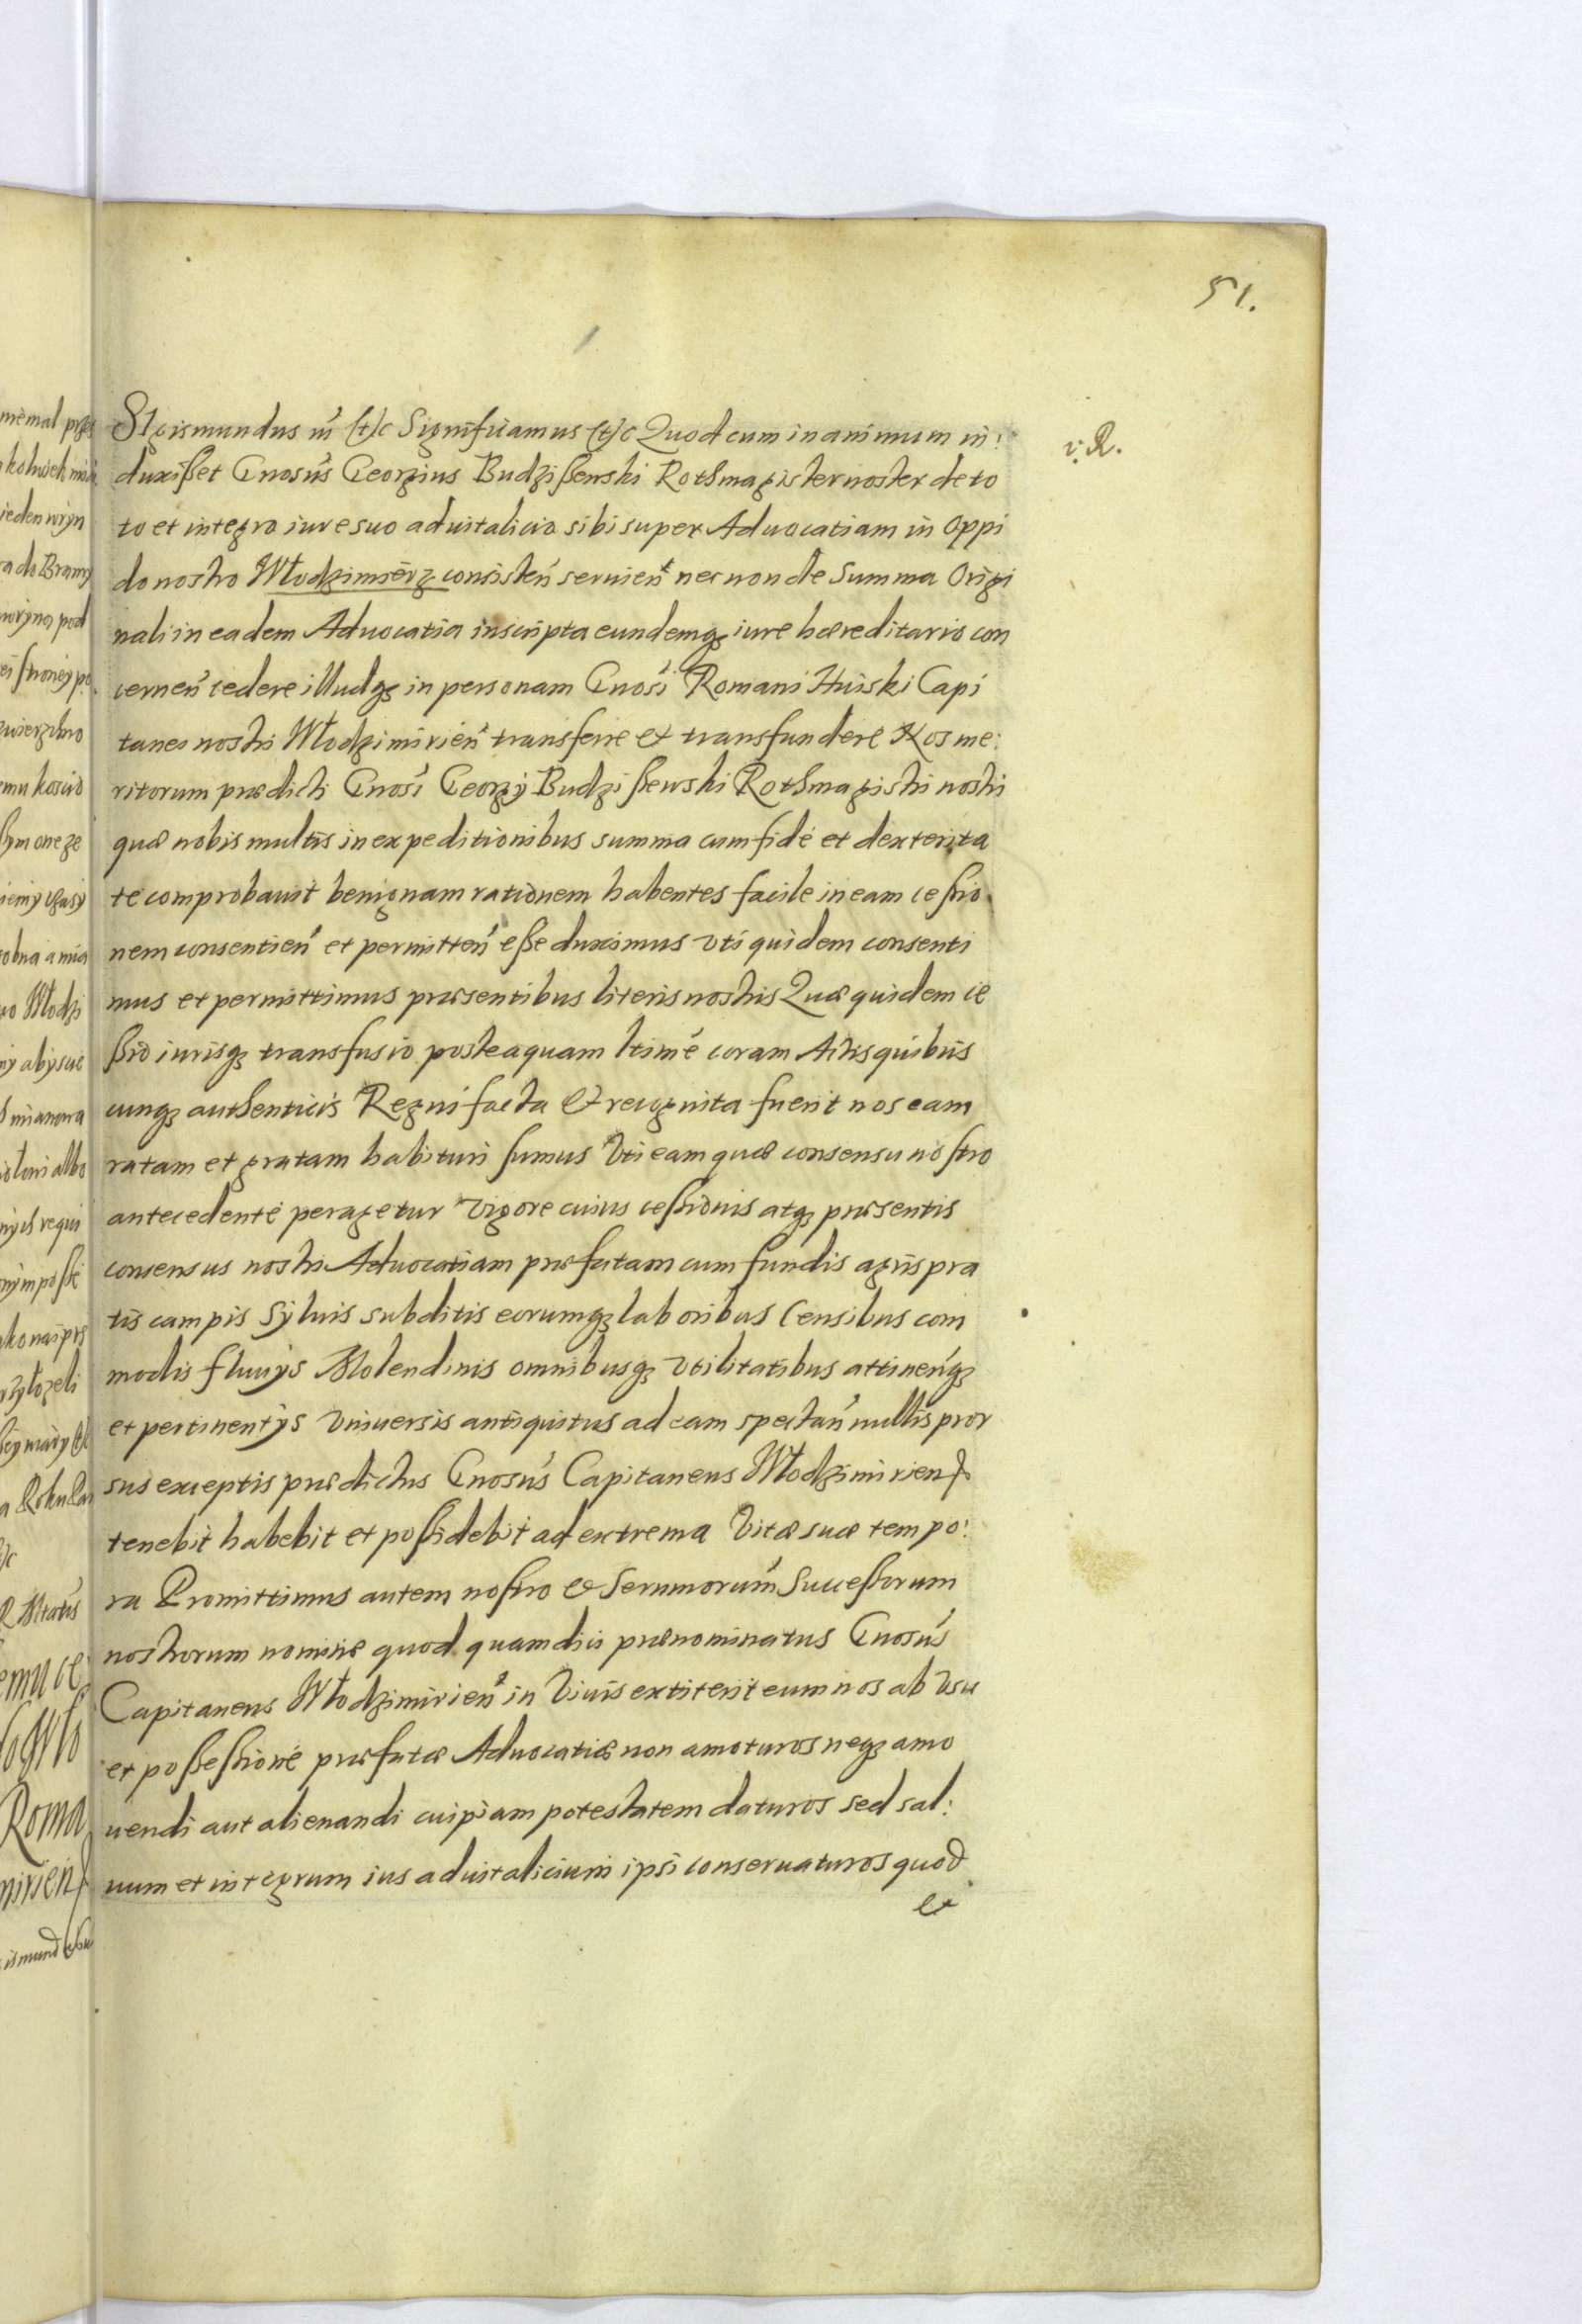 51.
Sigismundus III (et)c Significamus (et)c Quod cum in animum in:
v. R.
duxißet Gnosus Georgius Budzißewski Rothmagister noster de to
to et integro iure suo aduitalicio sibi super Aduocatiam in Oppi
do nostro Włodzimierz consisten seruient nec non de Summa Origi
nali in eadem Aduocatia inscripta eundemq iure hæreditario con
cernen cedere illudq in personam Gnosi Romani Huiski Capi
tanei nostri Włodzimirien transferre et transfundere Nos me:
ritorum prædicti Gnosi Georgÿ Budzißewski Rothmagistri nostri
quæ nobis multis in expeditionibus summa cum fide et dexterita
te comprobauit benignam rationem habentes facile in eam ceßio
nem consentien et permitten eße duximus vti quidem consenti
mus et permittimus præsentibus literis nostris Quæ quidem ce
ßio iurisq transfusio posteaquam ltime coram Actis quibus
cunq authenticis Regni facta et recognita fuerit nos eam
ratam et gratam habituri sumus Vti eam quæ consensu nostro
antecedente peragetur Vigore cuius ceßionis atq præsentis
consensus nostri Aduocatiam præfatam cum fundis agris pra
tis campis Syluis subditis eorumq laboribus Censibus com
modis fluuÿs Molendinis omnibusq vtilitatibus attinenq
et pertinentÿs Vniuersis antiquitus ad eam spectan nullis pror
sus exceptis prædictus Gnosus Capitaneus Włodzimirien
tenebit habebit et poßidebit ad extrema Vitæ suæ tempo:
ra Promittimus autem nostro et Sernmorum Succeßorum
nostrorum nomine quod quamdiu prænominatus Gnosus
Capitaneus Włodzimirien in Viuis extiterit eum nos ab Vsu
et poßeßione præfatæ Aduocatiæ non amoturos neq amo
uendi aut alienandi cuipiam potestatem daturos sed sal:
uum et integrum ius aduitalicium ipsi conseruaturos quod
et